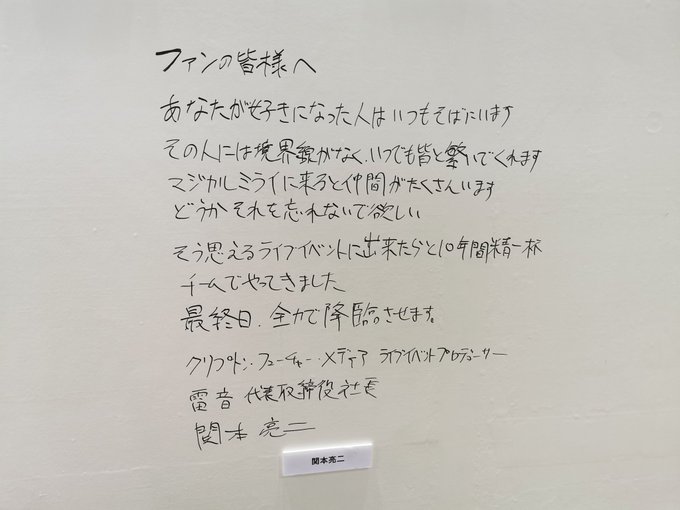 ファンの皆様へ
あなたが好きになった人はいつもそばにいます
その人には境界線がなく、いつでも皆と繋いでくれます
マジカルミライに来ると仲間がたくさんいます
どうかそれを忘れないで欲しい
そう思えるライブイベントに出来たらと10年間精一杯
チームでやってきました
最終日、全力で降臨させます。
クリプトン・フューチャー・メディア ライブイベントプロデューサー
雷音 代表取締役社長
関本 亮二
関本亮二